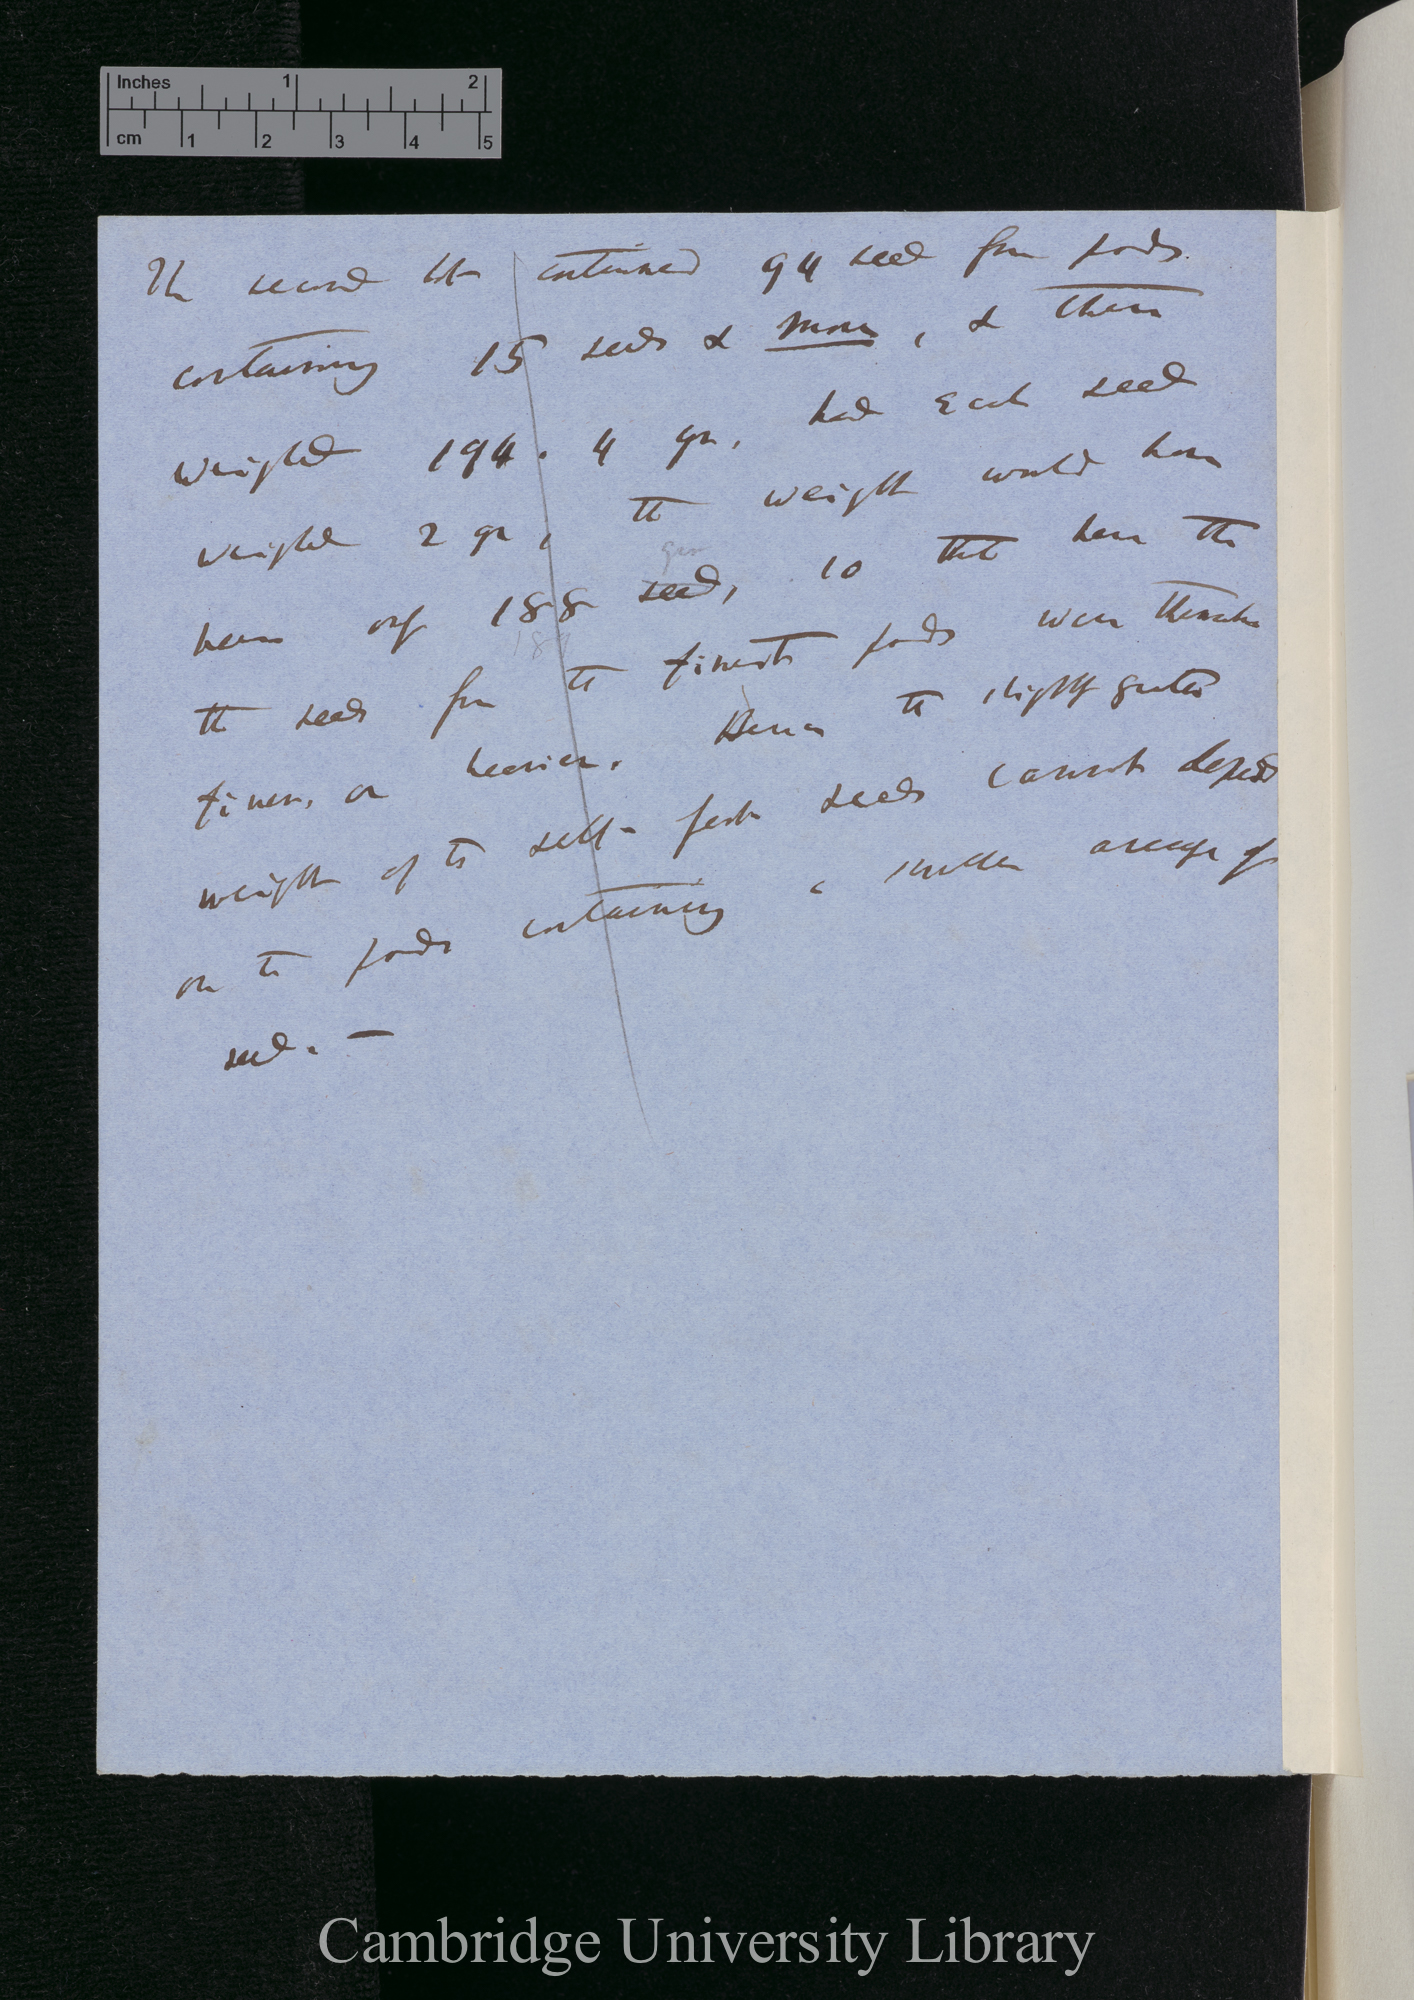 Inches 1 2
cm 1 2 3 4 5
The second lot contained 94 seed from pods
containing 15 seeds & more, & these
weighed 194.4 gr, had each seed
weighed 2 gr, the weight would have
gr
been only 188 seed, so that here the
188
the seeds from the finest pods were themselves
finer, or heavier. Hence the slightly greater
weight of the self-fert seeds cannot depend
on the pods containing a smaller average of
seed. —
Cambridge University Library